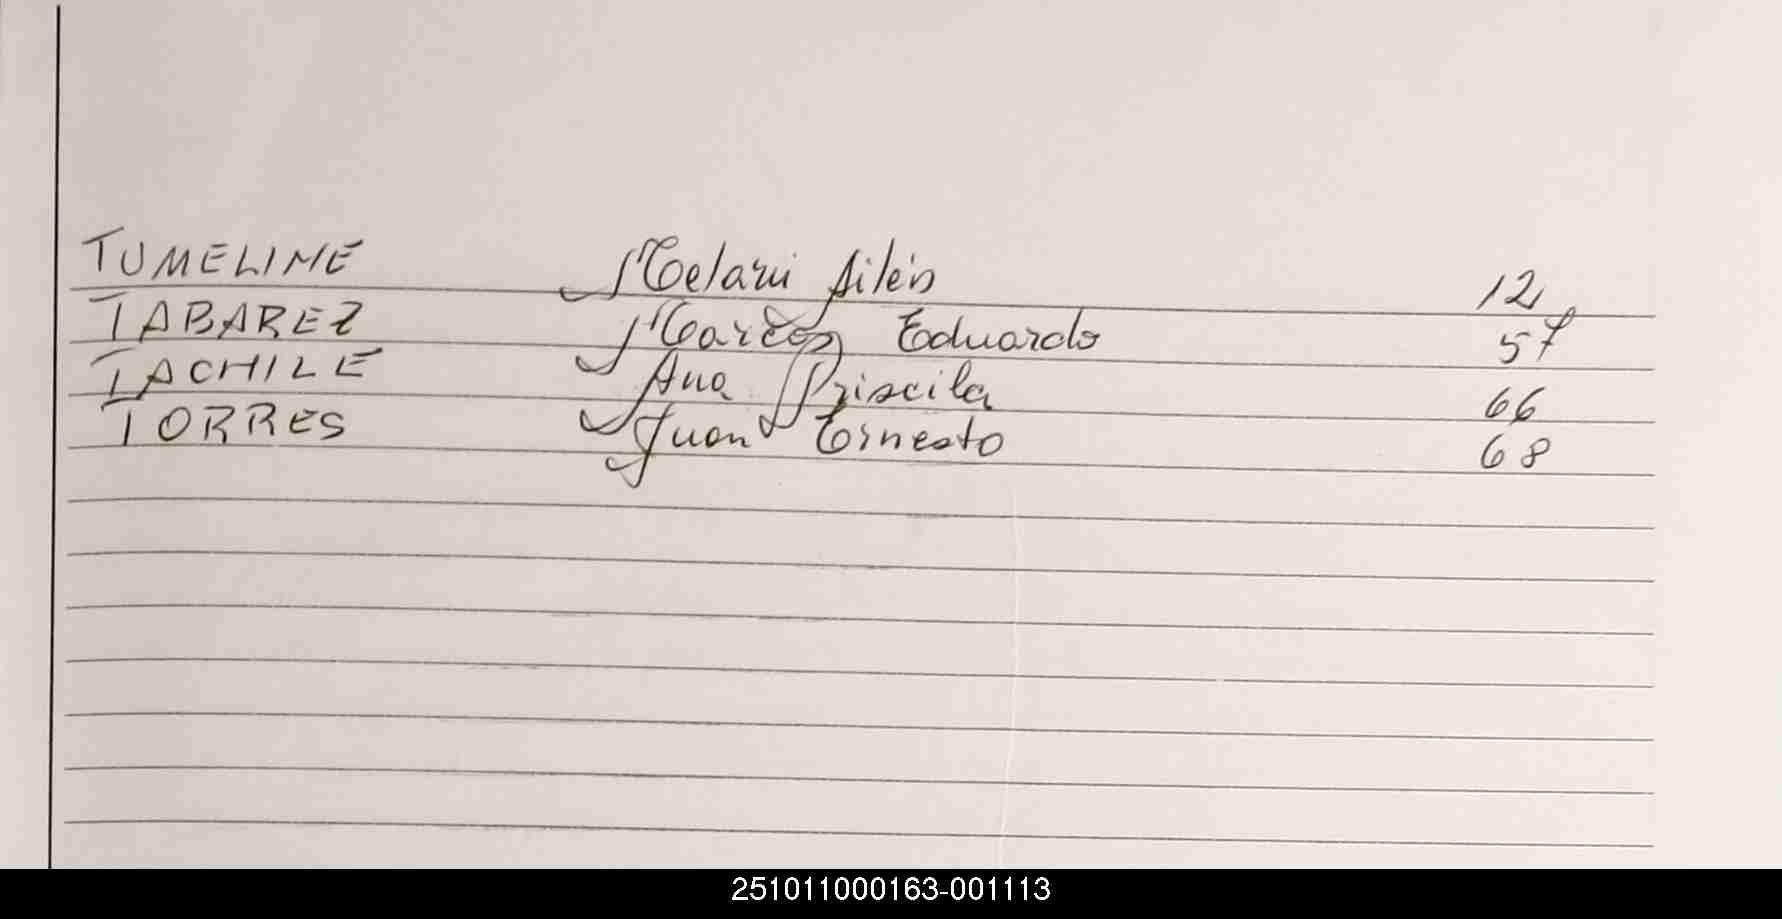 TUMELINE Melani Ailén 12
TABAREZ Marcos Eduardo 57
TACHILE Ana Priscila 66
TORRES Juan Ernesto 68
251011000163-001113